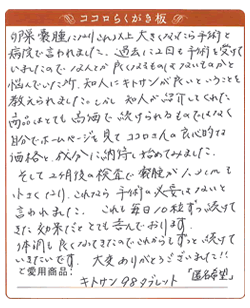 ココロらくがき板
卵巣嚢腫になりこれ以上大きくなったら手術と
病院で言われました。過去に2回も手術を受けて
いましたのでなんとか良いものはないものかと
悩んでいた所、知人にキトサンが良いということを
教えられました。しかし知人が紹介してくれた
商品はとても高価で続けられるものではなく
自分でホームページを見てココロさんの良心的な
価格と成分に納得し始めてみました。
そして2ヶ月後の検査で嚢腫が
小さくなり、これなら手術の必要はないと
言われました。これも毎日10粒ずつ続けて
きた効果だととても喜んでおります。
体調も良くなってきたのでこれからもずっと続けて
いきたいです。大変ありがとうございました!!
ご愛用商品: 「匿名希望」
キトサン98タブレット